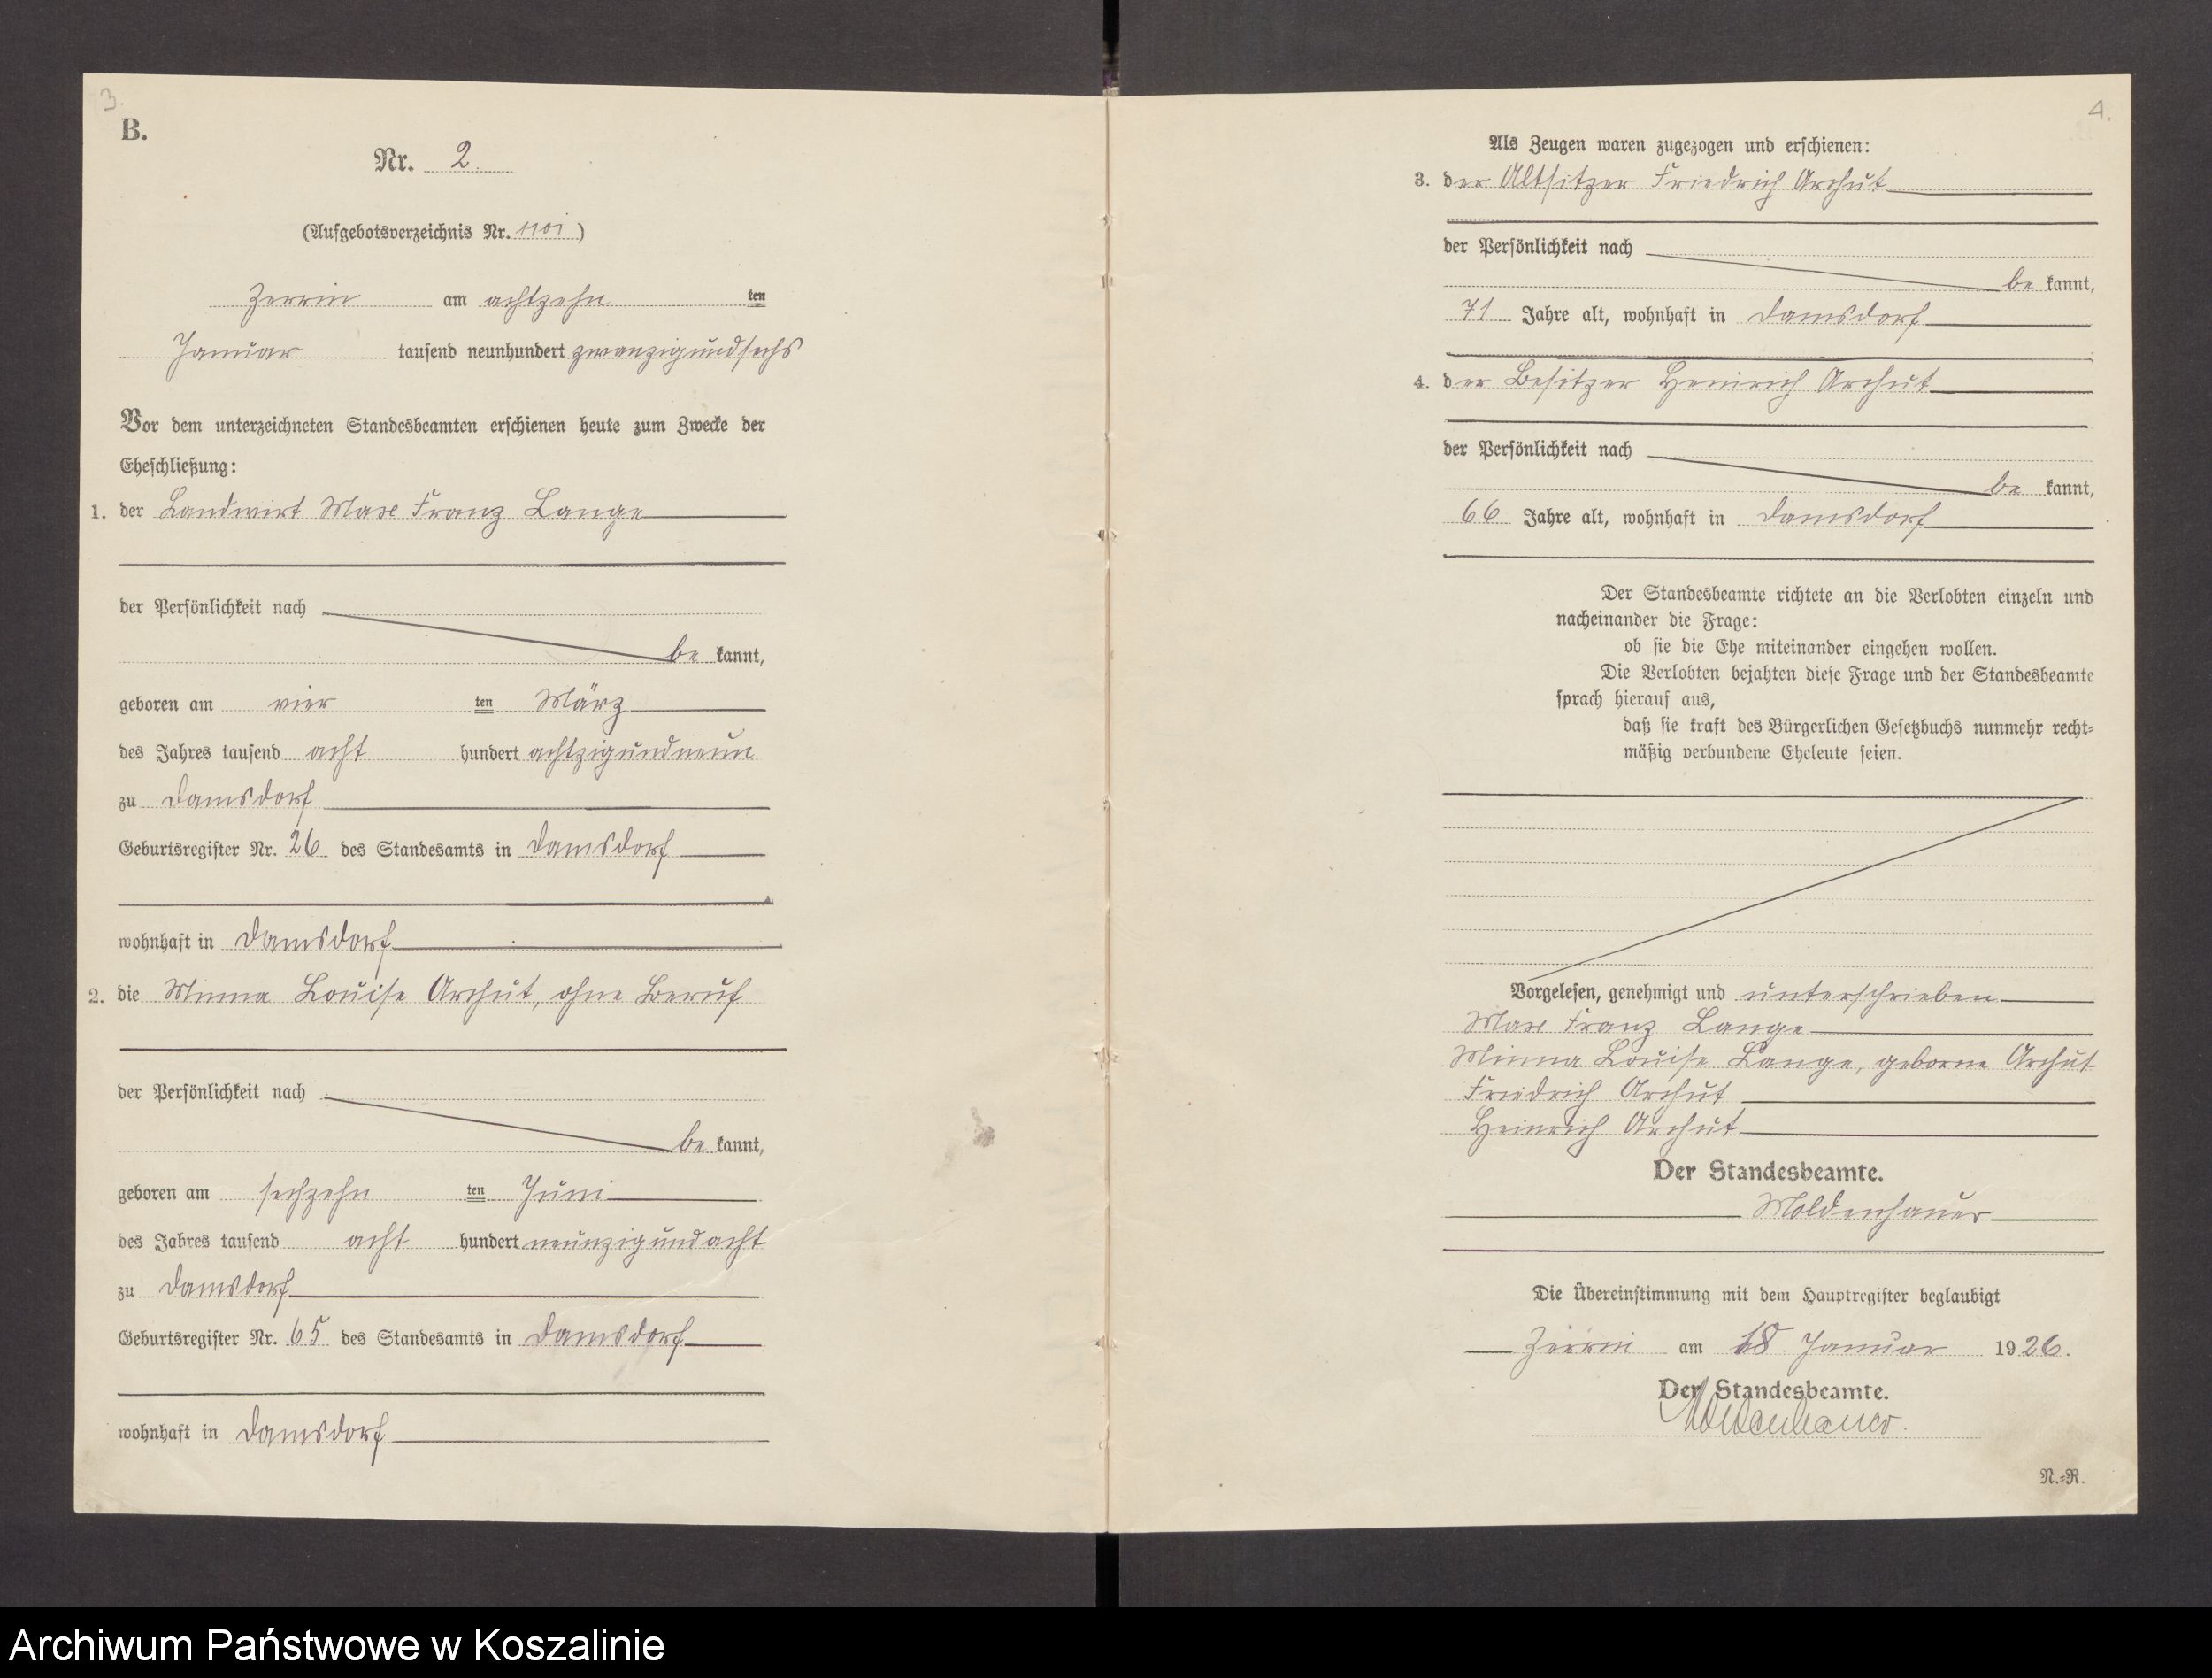 3.
B.
Nr. 2.
(Aufgebotsverzeichnis Nr. 1101)
Zerrin am achtzehn ten
Januar tausend neunhundert zwanzigundsechs
Vor dem unterzeichneten Standesbeamten erschienen heute zum Zwecke der
Eheschließung:
1. der Landwirt Max Franz Lange
der Persönlichkeit nach
be kannt,
geboren am vier ten März
des Jahres tausend acht hundert achtzigundneun
zu Damsdorf
Geburtsregister Nr. 26 des Standesamts in Damsdorf
wohnhaft in Damsdorf
2. die Minna Louise Archut, ohne Beruf
der Persönlichkeit nach
be kannt,
geboren am sechzehn ten Juni
des Jahres tausend acht hundert neunzigundacht
zu Damsdorf
Geburtsregister Nr. 65 des Standesamts in Damsdorf
wohnhaft in Damsdorf
4.
Als Zeugen waren zugezogen und erschienen:
3. der Altsitzer Friedrich Archut
der Persönlichkeit nach
be kannt,
71 Jahre alt, wohnhaft in Damsdorf
4. der Besitzer Heinrich Archut
der Persönlichkeit nach
be kannt,
66 Jahre alt, wohnhaft in Damsdorf
Der Standesbeamte richtete an die Verlobten einzeln und
nacheinander die Frage:
ob sie die Ehe miteinander eingehen wollen.
Die Verlobten bejahten diese Frage und der Standesbeamte
sprach hierauf aus,
daß sie kraft des Bürgerlichen Gesetzbuchs nunmehr recht-
mäßig verbundene Eheleute seien.
Vorgelesen, genehmigt und unterschrieben
Max Franz Lange
Minna Louise Lange, geborne Archut
Friedrich Archut
Heinrich Archut
Der Standesbeamte.
Moldenhauer
Die Übereinstimmung mit dem Hauptregister beglaubigt
Zerrin am 18. Januar 1926.
Der Standesbeamte.
Moldenhauer.
N.-R.
Archiwum Państwowe w Koszalinie